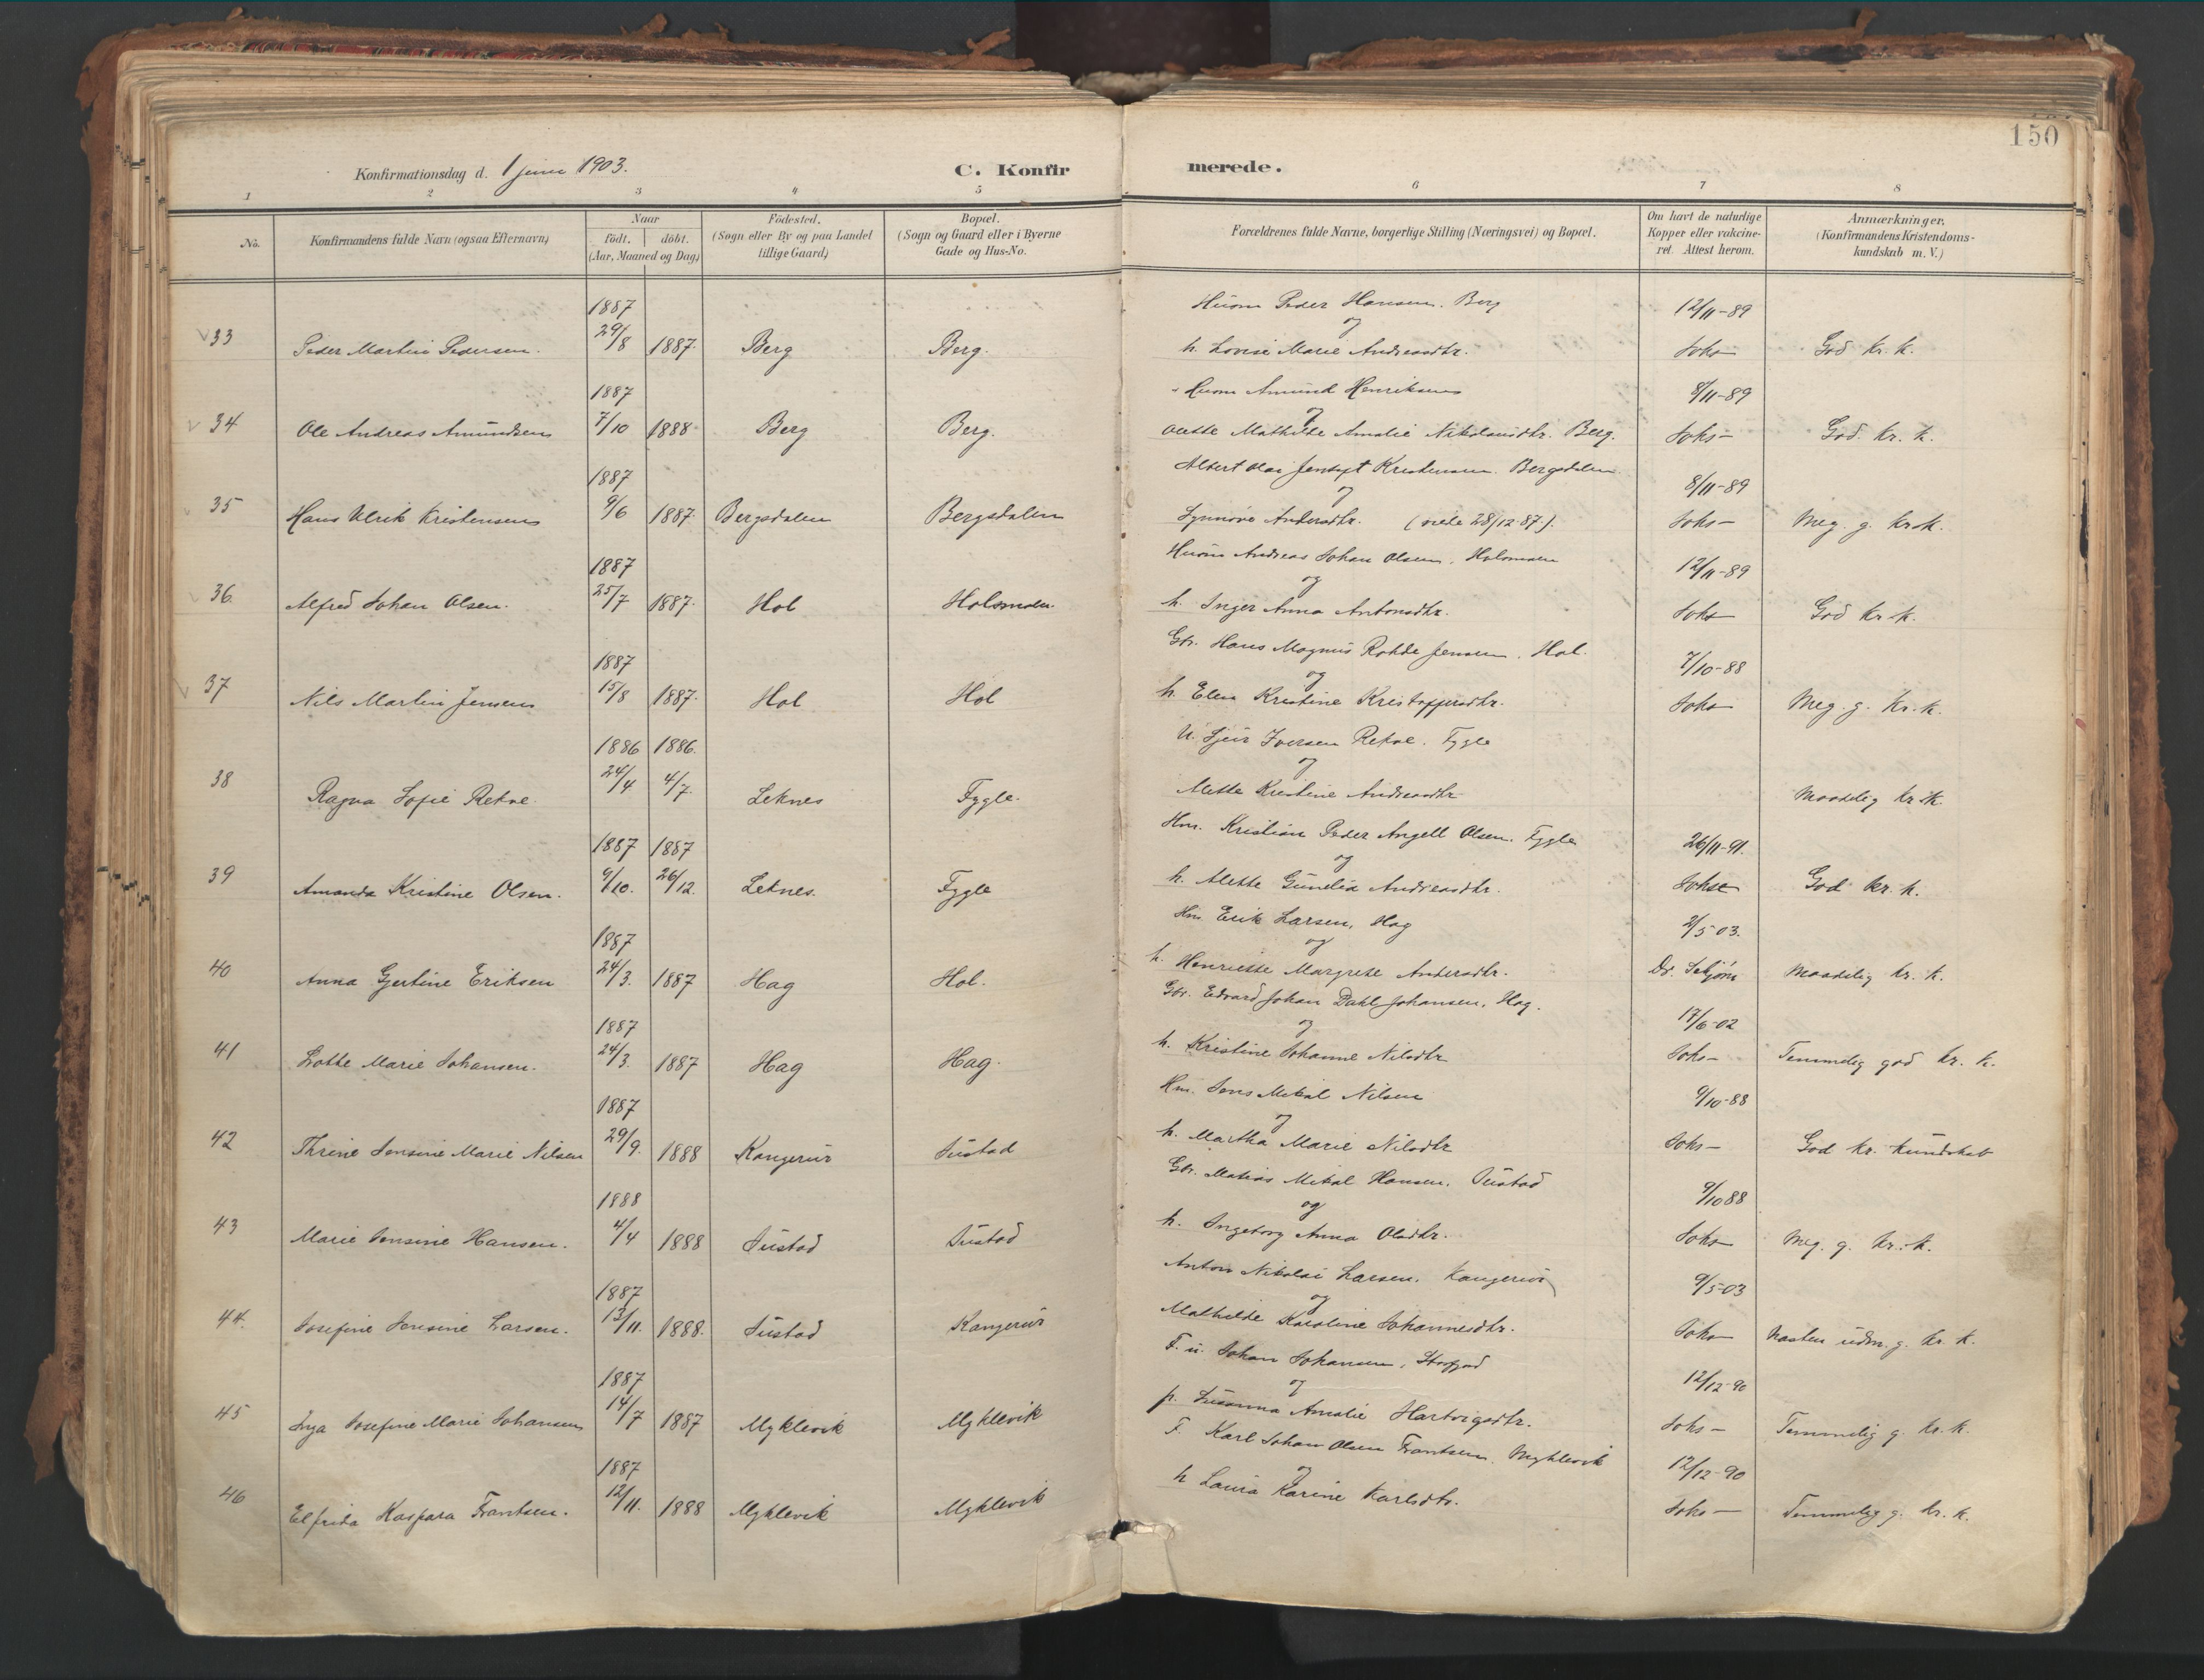 150
Konfirmationsdag d. 1 juni 1903.
C. Konfirmerede.
1 2 3 4 5 6 7 8
No.
Konfirmandens fulde Navn (ogsaa Efternavn)
Naar
født. døbt.
(Aar, Maaned og Dag)
Födested.
(Sogn eller By og paa Landet
tillige Gaard)
Bopæl.
(Sogn og Gaard eller i Byerne
Gade og Hus-No.
Forældrenes fulde Navne, borgerlige Stilling (Næringsvei) og Bopæl.
Om havt de naturlige
Kopper eller vakcine-
ret. Attest herom.
Anmærkninger.
(Konfirmandens Kristendoms-
kundskab m. V.)
1887 Husm Peder Hansen. Berg 12/11-89
og
33 Peder Martin Pedersen. 29/8 1887. Berg Berg. h. Lovise Marie Andreasdtr. God kr. k.
1887 Husm Amund Henriksens 8/11-89
og
34 Ole Andreas Amundsens 7/10 1888 Berg Berg. Olette Mathilde Amalie Nikolaisdtr. Berg. God. kr. k.
1887 Albert Olai Kristensen. Bergsdalen 8/11-89
og
35 Hans Ulrik Kristensens 9/6 1887 Bergsdalen Bergsdalen Synnøve Andersdtr. (viede 28/12 87.). Meg. g. kr. k.
1887 Husm Andreas Johan Olsen. Holsmoen 12/11-89
og
36. Alfred Johan Olsen. 25/7 1887. Hol Holsmoen h. Inger Anna Antonsdtr. God kr. k.
1887 Gbr. Hans Magnus Rohde Jensen. Hol. 7/10-88
og
37 Nils Martin Jensen 15/8 1887. Hol Hol h. Elen Kristine Kristoffersdtr. Meg. g. kr. k.
1886 1886. U. Sjur Iversen Rekve. Fygle
og
38 Ragna Sofie Rekve. 24/4 4/7. Leknes Fygle. Mette Kristine Andreasdtr Maadelig kr. k.
1887 1887 Hm. Kristian Peder Angell Olsen. Fygle 26/11-91.
og
39 Amanda Kristine Olsen. 9/10. 26/12. Leknes. Fygle h. Alette Gunelia Andreasdtr. God kr. k.
1887 Hm. Erik Larsen, Hag 2/5 03.
og
40 Anna Gjertine Eriksen 24/3. 1887 Hag Hol. h. Henriette Margrete Andersdtr. Dr. Maadelig kr. k.
1887 Gbr. Edvard Johan Dahl Johansen, Hag. 17/6-02
og
41 Lotte Marie Johansen. 24/3. 1887 Hag Hag. h. Kristine Johanne Nilsdtr Temmelig god kr. k.
1887 Hm. Jens Mikal Nilsen 9/10-88
og
42 Thrine Jensine Marie Nilsen 29/9. 1888 Kangerur Sustad h. Martha Marie Nilsdtr God kr. kundskab
1888 Gbr. Matias Mikal Hansen. Sustad 9/10 88
og
43 Marie Jensine Hansen. 4/4 1888 Sustad Sustad h. Ingeborg Anna Olsdtr. Meg. g. kr. k.
1887 Anton Nikolai Larsen. Kangerur 9/5-03
og
44. Josefine Jensine Larsen. 13/11. 1888. Sustad Kangerur Mathilde Karoline Johannesdtr. Næsten udm. g. kr. k.
1887 F. u. Johan Johansen, 12/12-90
og
45 Inga Josefine Marie Johansen 14/7 1887 Myklevik Myklevik p. Susanna Amalie Hartvigsdtr. Temmelig g. kr. k.
1887 F. Karl Johan Olsen Frantsen. Myklevik 12/12-90
og
46 Elfrida Kaspara Frantsen. 12/11. 1888 Myklevik Myklevik h Laura Karine Karlsdtr. Temmelig g. kr. k.